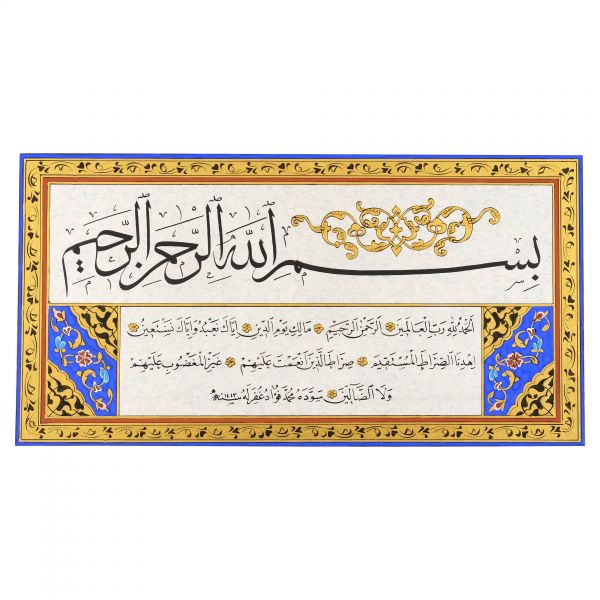 بسم الله الرحمن الرحيم
الحمد لله رب العالمين الرحمن الرحيم مالك يوم الدين إياك نعبد وإياك نستعين
اهدنا الصراط المستقيم صراط الذين أنعمت عليهم غير المغضوب عليهم
ولا الضالين سوده محمد فؤاد غفر له سنة ١٤١٣